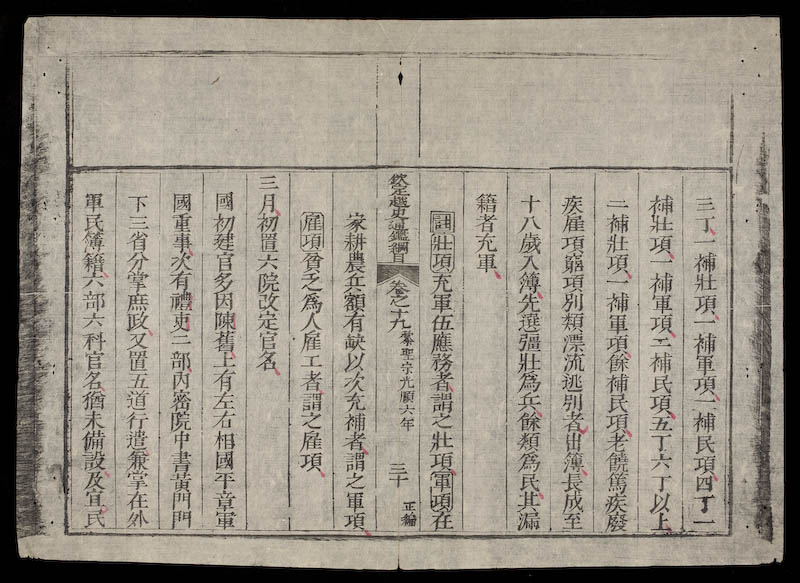 三丁一補壯項一補軍項一補民項四丁一
補壯項一補軍項二補民項五丁六丁以上
二補壯項一補軍項餘補民項老饒篤疾廢
疾雇項窮項別類漂流逃別者出簿長成至
十八歲入簿先選彊壯為兵餘類為民其漏
籍者充軍
註壯項充軍伍應務者謂之壯項軍項在
欽定越史通鑑綱目 卷之十九 黎聖宗光順六年 三十 正編
家耕農兵額有缺以次充補者謂之軍項
雇項貧乏為人雇工者謂之雇項
三月初置六院改定官名
國初建官多因陳舊上有左右相國平章軍
國重事次有禮吏二部內密院中書黃門門
下三省分掌庶政又置五道行遣兼掌在外
軍民簿籍六部六科官名猶未備設及宜民